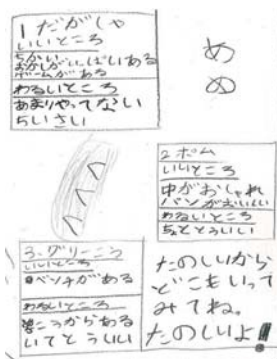 1 だがしゃ
いいところ
ちかい
おかしがいっぱいある
ゲームがある
わるいところ
あまりやってない
ちいさい
め
ぬ
2 ポム
いいところ
中がおしゃれ
パンがおいしい
わるいところ
ちょととうい
3. グリーこう
いいところ
ベンチがある
わるいところ
こうからある
いてとうい
たのしいから
どこもいって
みてね。
たのしいよ!!!